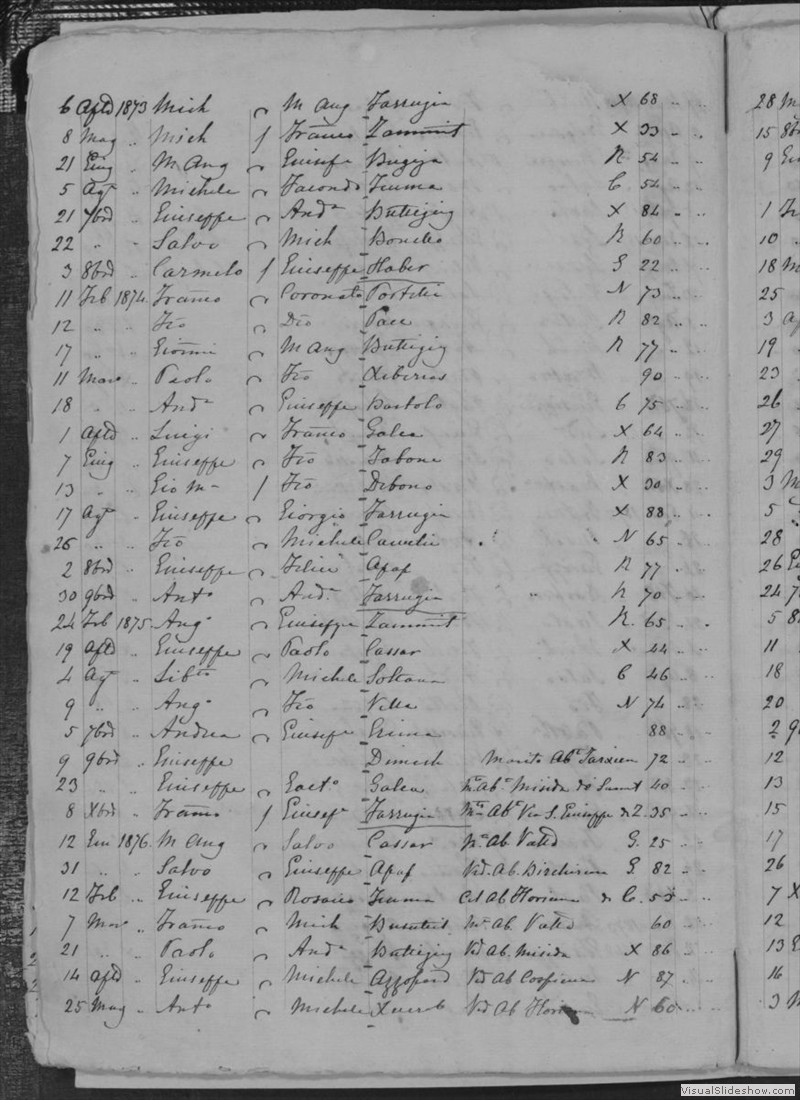 6 Aple 1873 Mich M Ang Farrugia X 68 " "
8 Mag " Mich / Franco Zammit X 33 " "
21 Giug " M Ang Giusepe Bugeja R 54 " "
5 Agt " Michele Facondo Gemma C 54 " "
21 7bre " Giuseppe Anda Buttigieg X 84 " "
22 " " Salvo Mich Bonello R 60 " "
3 8bre " Carmelo / Giuseppe Haber G 22 " "
11 Feb 1874 Franco Coronato Portelli N 73 " "
12 " " Fco Dco Pace R 82 " "
17 " " M Ang Buttigieg R 77 " "
11 Marzo " Paolo Fco Xiberras 90 " "
18 " " Anda Giuseppe Bartolo C 75 " "
1 Aple " Luigi Franco Galea X 64 " "
7 Giug " Giuseppe Fco Tabone R 83 " "
13 " " Gio Ma / Fco Debono X 30 " "
17 Agt " Giuseppe Giorgio Farrugia X 88 " "
26 " " Fco Michele Camilleri N 65 " "
2 8bre " Giuseppe Felice Apap R 77 " "
30 9bre " Anto Anda Farrugia R 70 " "
24 Feb 1875 Ango Giuseppe Zammit R 65 " "
19 Aple " Giuseppe Paolo Cassar X 44 " "
4 Agt " Libto Michele Soltana C 46 " "
9 " " Ango Fco Vella N 74 " "
5 7bre " Andrea Giusepe Grima 88 " "
9 9bre " Giuseppe Dimech Marito Abe Tarxien 72 " "
23 " " Giuseppe Gaeto Galea Abe Misida 40 " "
8 Xbre " Franco / Giusepe Farrugia Abe Via S. Giuseppe 2. 35 " "
12 Gen 1876 M Ang Salvo Cassar Ab Valta G. 25 " "
31 " " Salvo Giuseppe Apap Ved. Ab. Birchircara G. 82 " "
12 Feb " Giuseppe Rosario Gemma Cel Ab Floriana C. 53 " "
7 Mar " Franco Mich Busuttil Ab Valta 60 " "
21 " " Paolo Anda Buttigieg Ved Ab. Misida X 86 " "
14 Aple " Giuseppe Michele Azzopard Ved Ab Cospicua N 87 " "
25 Mag " Anto Michele Xuereb Ved Ab Floriana N 60 " "
28
15 8b
9
1
10
18
25
3
19
23
26
27
29
3
5
28
26
24
5
11
18
20
2
12
13
15
17
26
7 X
12
13
16
3
VisualSlideshow.com